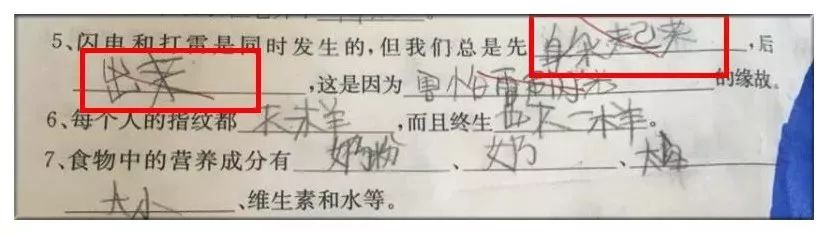 5、闪电和打雷是同时发生的,但我们总是先躲起来,后
出来,这是因为害怕雷的缘故。
6、每个人的指纹都不样,而且终生也不一样。
7、食物中的营养成分有奶粉、奶、
大小、维生素和水等。